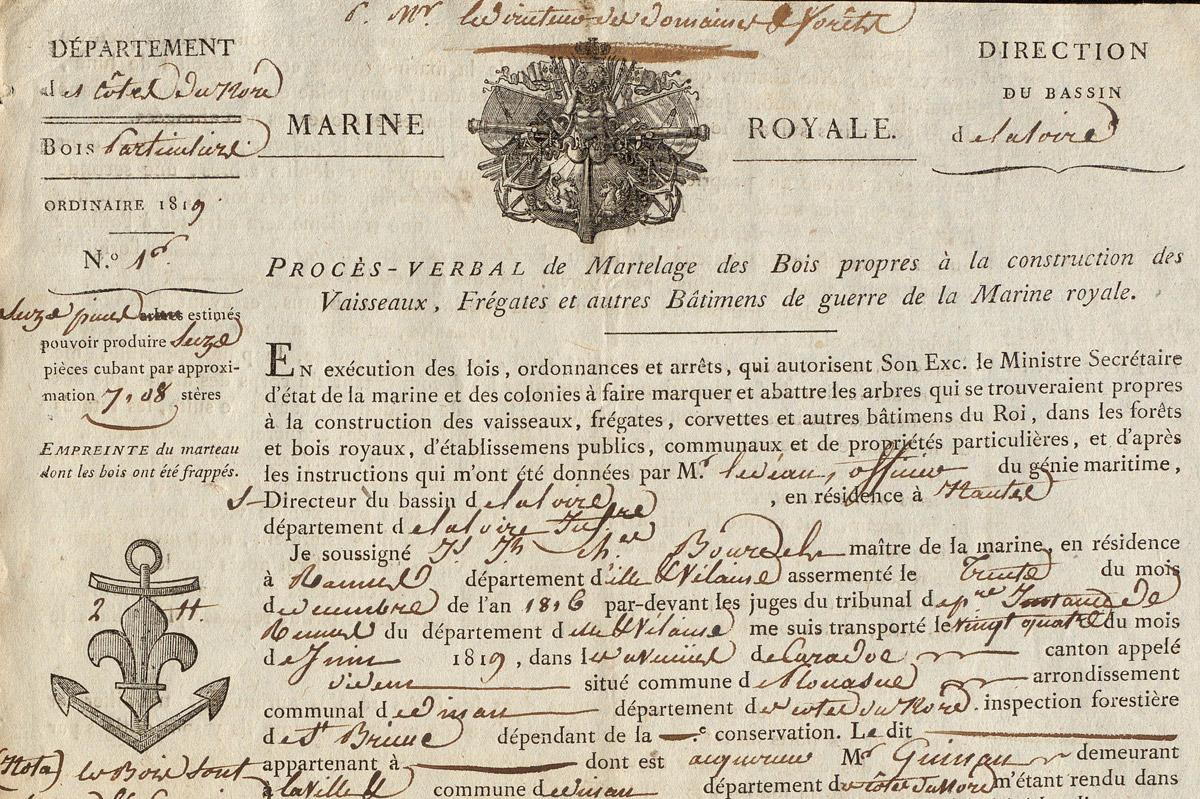 p. Mr. le Directeur des Domaines & Forêts
DÉPARTEMENT
des côtes du Nord
BOIS Particuliers
ORDINAIRE 1819
N.o 1er
MARINE ROYALE.
DIRECTION
DU BASSIN
de la loire
PROCÈS-VERBAL de Martelage des Bois propres à la construction des
Vaisseaux, Frégates et autres Bâtimens de guerre de la Marine royale.
Seize pieds arbres estimés
pouvoir produire Seize
pièces cubant par approxi-
mation 7,08 stères
EMPREINTE du marteau
dont les bois ont été frappés.
2 H.
(Nota) les Bois sont
EN exécution des lois, ordonnances et arrêts, qui autorisent Son Exc. le Ministre Secrétaire
d'état de la marine et des colonies à faire marquer et abattre les arbres qui se trouveraient propres
à la construction des vaisseaux, frégates, corvettes et autres bâtimens du Roi, dans les forêts
et bois royaux, d'établissemens publics, communaux et de propriétés particulières, et d'après
les instructions qui m'ont été données par M.r officier du génie maritime,
S-Directeur du bassin de la loire, en résidence à Nantes
département de la loire Infre
Je soussigné maître de la marine, en résidence
à Rennes département d'ille & Vilaine assermenté le Trente du mois
de de l'an 1816 par-devant les juges du tribunal de pre Instance de
Rennes du département d'ille & Vilaine me suis transporté le vingt quatre du mois
de Juin 1819, dans les avenues de Caradoc canton appelé
situé commune de Plouasne arrondissement
communal de dinan département des cotes du Nord. inspection forestière
de St Brieuc dépendant de la e conservation. Le dit
appartenant à dont est acquereur Mr demeurant
à la Ville commune de dinan département des côtes du Nord m'étant rendu dans